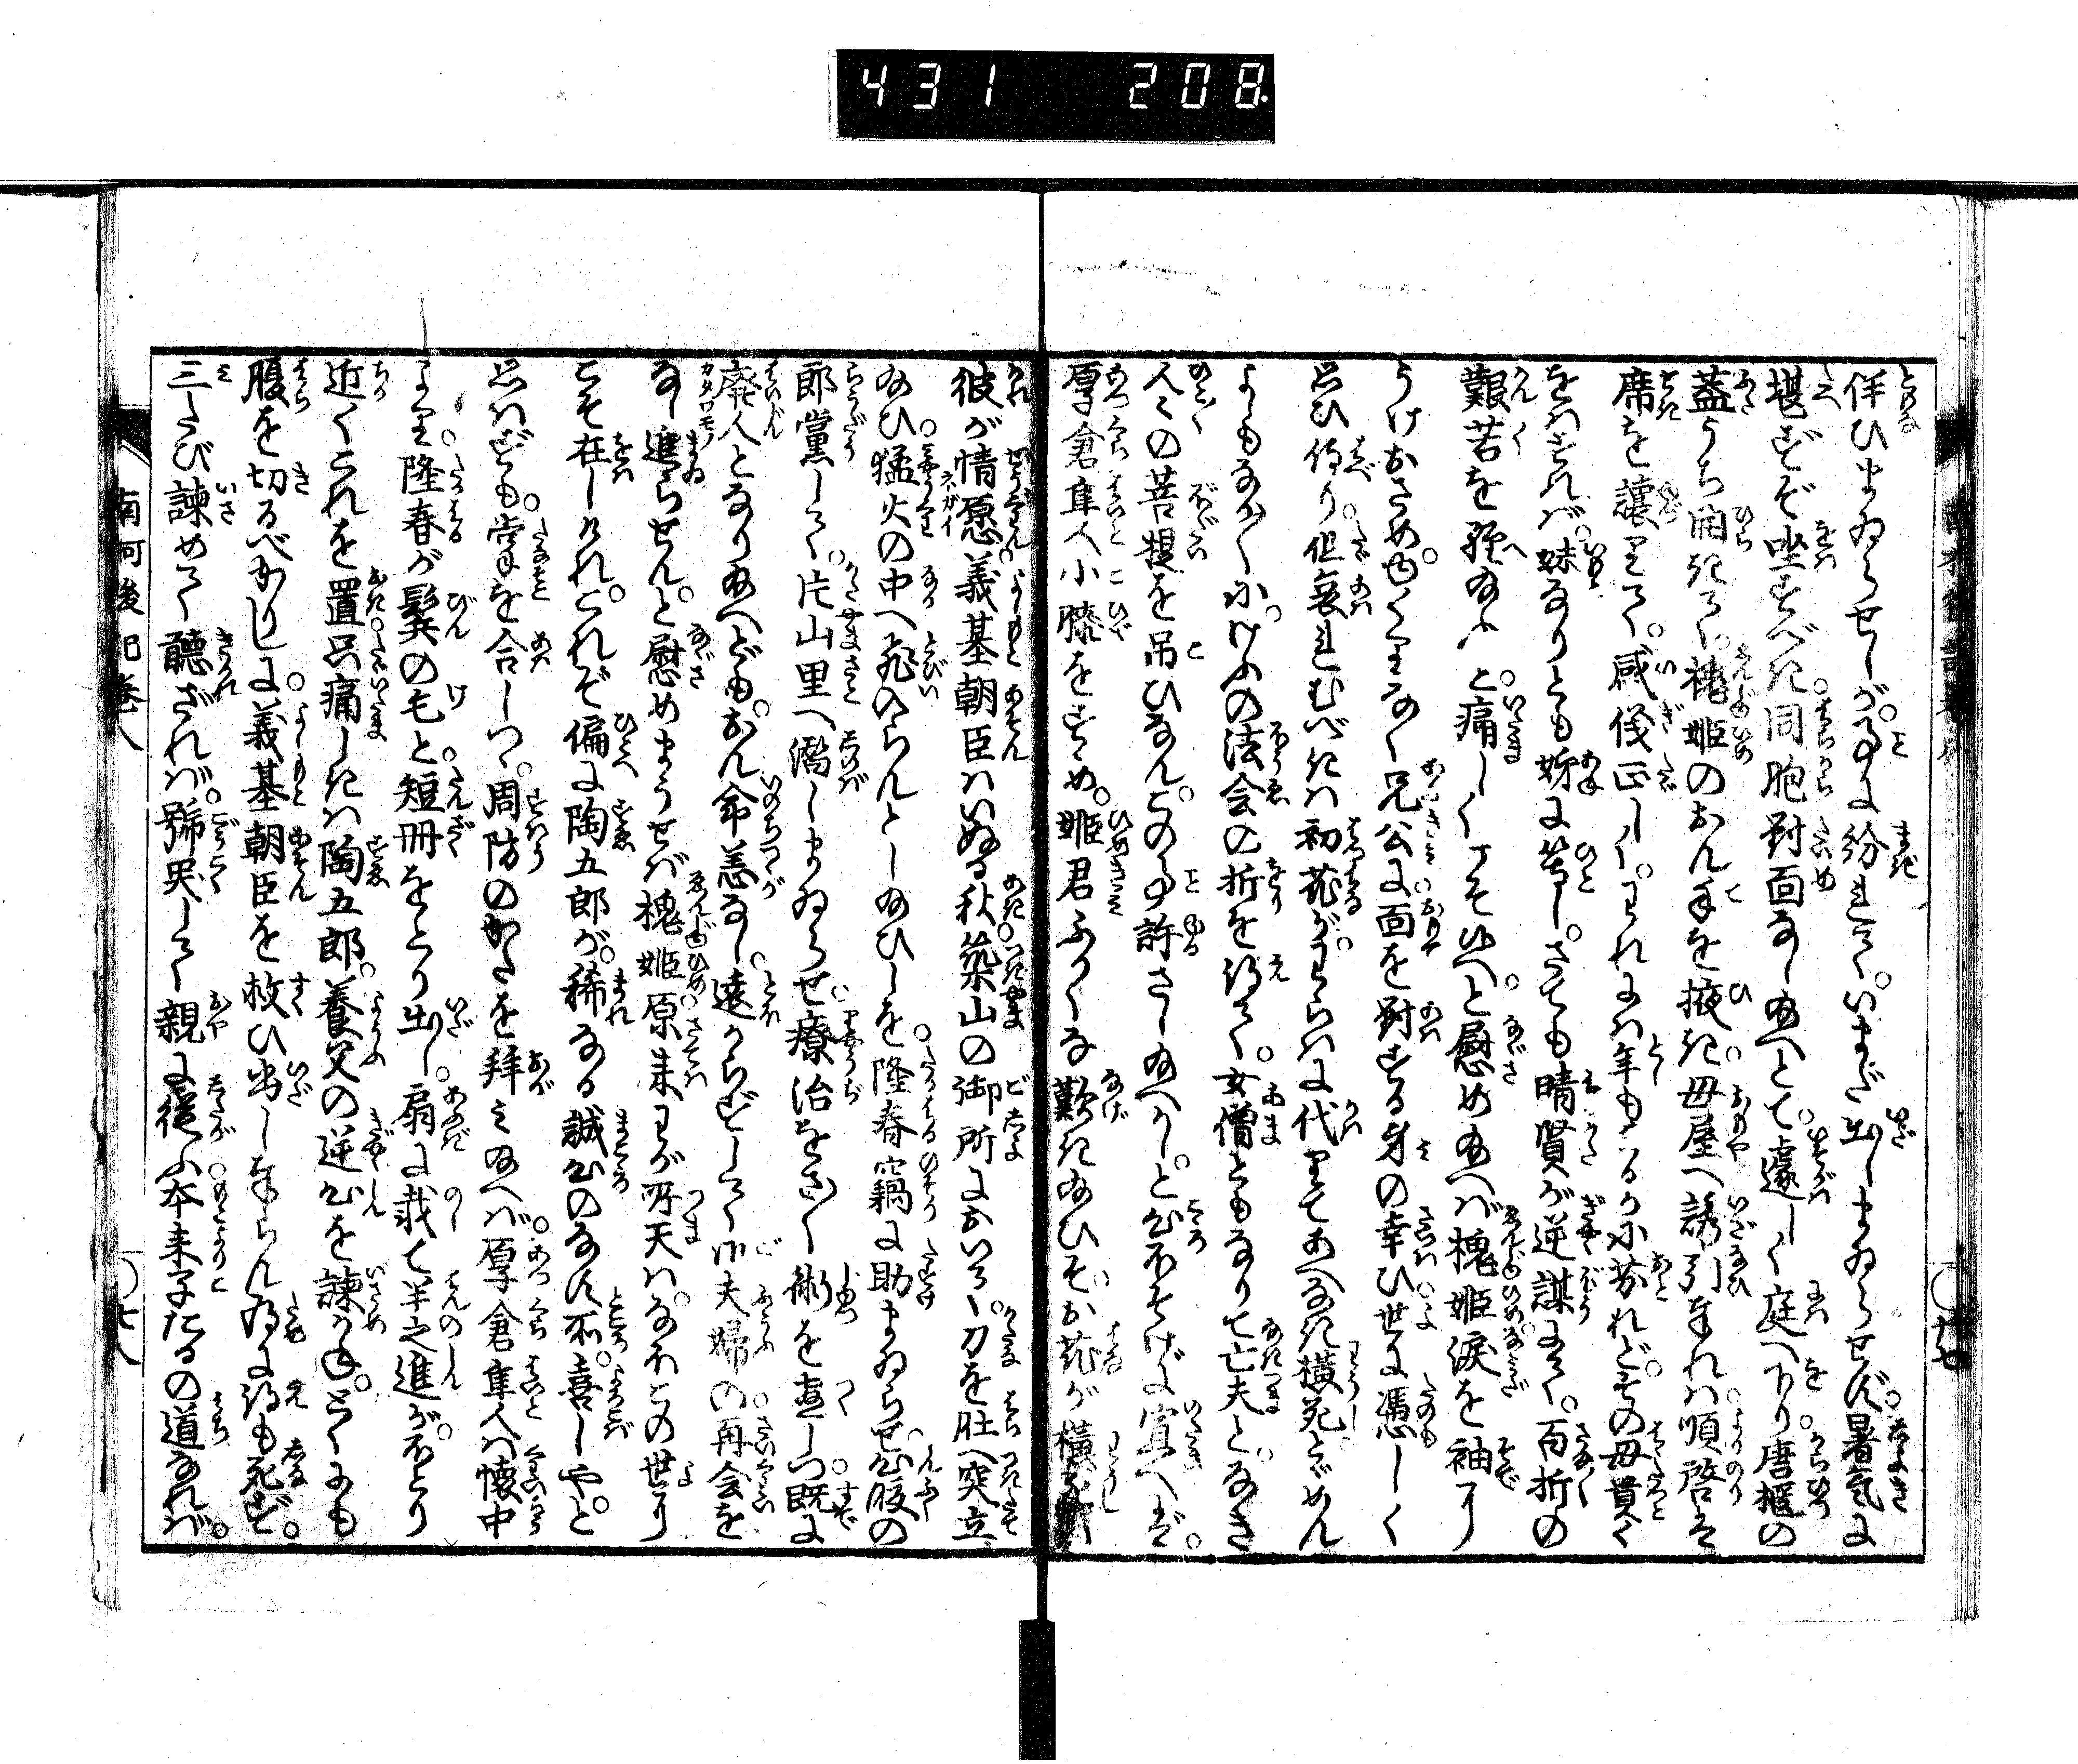 431 208.
伴ひまゐらせしが。事に紛れて。いまだ出しまゐらせず。暑気に
堪ずぞ坐すべき。同胞対面なし給へとて。遽しく庭へ下り。唐櫃の
蓋うち開きて。槐姫のおん手を掖き。母屋へ誘引奉れは。順啓は
席を譲りて。威儀正しく。われには年もはるかに劣れど。その母貴く
をはすれば。妹なりとも姉に等し。さても晴賢が逆謀にて。百折の
艱苦を経給ふと。痛しくこそ候へ。と慰め給へば槐姫。涙を袖に
うけおさめ。ゆくりなく兄公に面を対する身の幸ひ。世に憑しく
思ひ侍り。但哀れむべきは初花が。わらはに代りてあへなき横死とゞめん
よしもなかくに。けふの法会の折を得て。女僧ともなりて亡夫と。なき
人々の菩提を吊ひなん。この事許させ給へかし。と心ぞそげに宣へば。
厚倉隼人小膝をすゝめ。姫君ふかくな歎き給ひそ。初花が横死は
彼が情原。義基朝臣はいぬる秋。築山の御所において。刀を肚へ突立
給ひ。猛火の中へ飛入らんとし給ひしを。隆春竊に助まゐらせ。心腹の
郎黨して。片山里へ濳しまゐらせ。療治をさ〳〵術を盡しつ。既に
廃人となり給へども。おん命恙なし。遠からずして御夫婦の再会を
なし進らせん。と慰めまうせば槐姫。原来わが所天は。なほこの世に
こそ在しけれ。これぞ偏に陶五郎が。稀なる誠心のなす所。喜しやと
思はずも。掌を合しつゝ。周防のかたを拝み給へば。厚倉隼人は懐中
より。隆春が鬢の毛と。短冊をとり出し。扇に載て半之進が。ほとり
近くこれを置。只痛しきは陶五郎。養父の逆心を諫かね。とくにも
腹を切るべかりしに。義基朝臣を救ひ出し奉らん為に得も死ず。
三たび諫めて聴ざれば。號哭して親に従ふ。本来子たるの道なれば。
南柯後記巻八